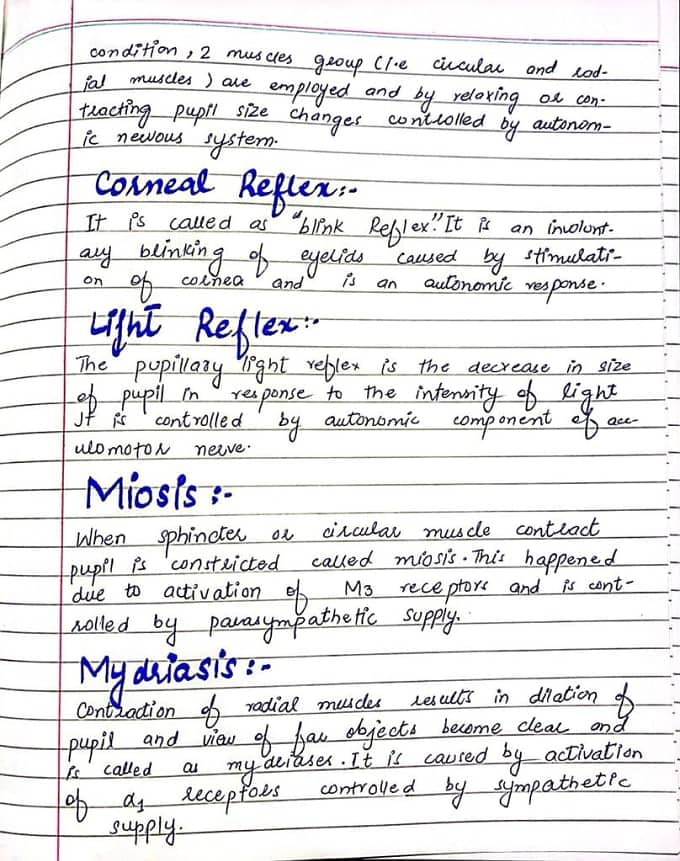 condition, 2 muscles group (i.e circular and rad-
ial muscles) are employed and by relaxing or con-
tracting pupil size changes controlled by autonom-
ic nervous system.
Corneal Reflex:-
It is called as "blink Reflex". It is an involunt-
ary blinking of eyelids caused by stimulati-
on of cornea and is an autonomic response.
Light Reflex:-
The pupillary light reflex is the decrease in size
of pupil in response to the intensity of light
It is controlled by autonomic component of occ-
ulomotor nerve.
Miosis:-
When sphincter or circular muscle contract
pupil is constricted called miosis. This happened
due to activation of M3 receptors and is cont-
rolled by parasympathetic supply.
Mydriasis:-
Contraction of radial muscles results in dilation of
pupil and view of far objects become clear and
is called as mydriases. It is caused by activation
of α1 receptors controlled by sympathetic
supply.